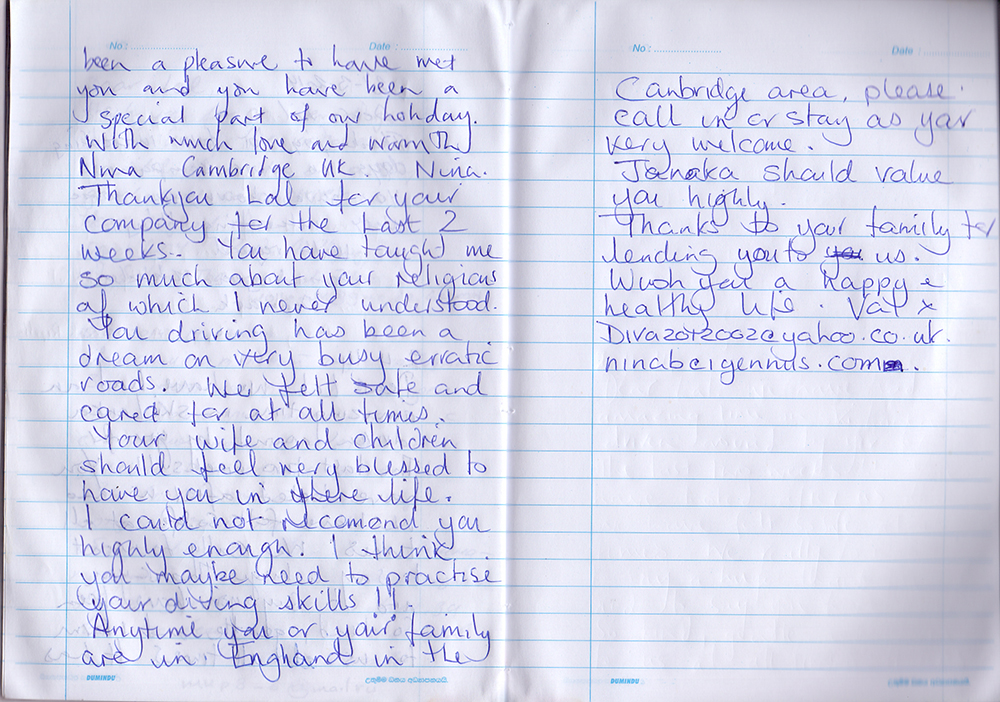 No : Date :
been a pleasure to have met
you and you have been a
special part of our holiday.
With much love and warmth
Nina Cambridge UK. Nina.
Thankyou Lal for your
company for the last 2
weeks.. You have taught me
so much about your religious
of which I never understood.
You driving has been a
dream on very busy erratic
roads. We felt safe and
cared for at all times.
Your wife and children
should feel very blessed to
have you in there life.
I could not recomend you
highly enough. I think
you maybe need to practise
your diving skills !!.
Anytime you or your family
are in England in the
DUMINDU
No : Date :
Canbridge area, please
call in or stay as your
very welcome.
Janaka should value
you highly.
Thanks to your family for
lending you to us.
Wush you a happy &
healthy life. Val x
Diva20t2002@yahoo.co.uk.
.com
DUMINDU